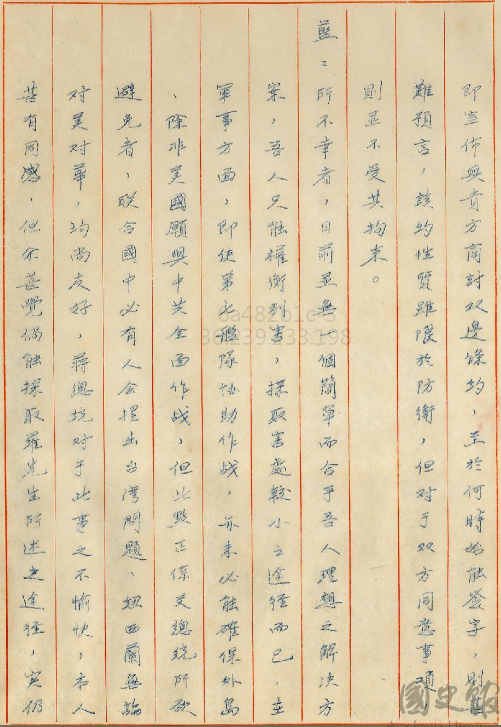 即宣佈與貴方商討双邊條約，至於何時始能簽字，則
難預言，該約性質雖限於防衛，但对于双方同意事項
則並不受其拘束。
藍：所不幸者，目前並無一個簡單而合乎吾人理想之解决方
案，吾人只能權衡利害，採取害處較小之途徑而已，在
軍事方面，即使第七艦隊協助作战，亦未必能確保外島
、除非美國願與中共全面作战，但此點正係艾總統所欲
避免者，联合國中必有人会提出台湾問題，紐西蘭無論
对美对華，均尚友好，蔣總統对于此事之不愉快，本人
甚有同感，但余甚覺倘能採取羅先生所述之途徑，实仍
國史館